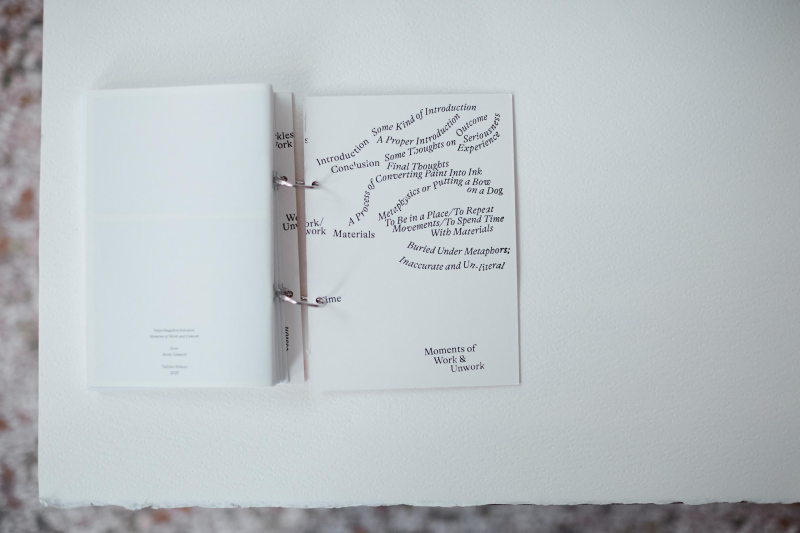 Moments of Work and Unwork
kles
ork
Wo
Unw
ork/
work
Some Kind of Introduction
A Proper Introduction
Introduction
Conclusion
Some Thoughts on
Outcome
Seriousness
Experience
Final Thoughts
A Process of Converting Paint Into Ink
Metaphysics or Putting a Bow
on a Dog
To Be in a Place/To Repeat
Movements/To Spend Time
With Materials
Materials
Buried Under Metaphors;
Inaccurate and Un-literal
ime
Moments of
Work &
Unwork